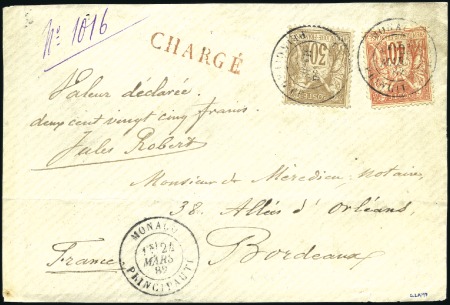 No 1016
CHARGÉ
30
40
Valeur déclarée
deux cent vingt cinq francs.
Jules Robert
Monsieur de Méredieu, notaire,
38, Allées d'Orléans,
Bordeaux
France
MONACO
24
MARS
PRINCIPAUTÉ